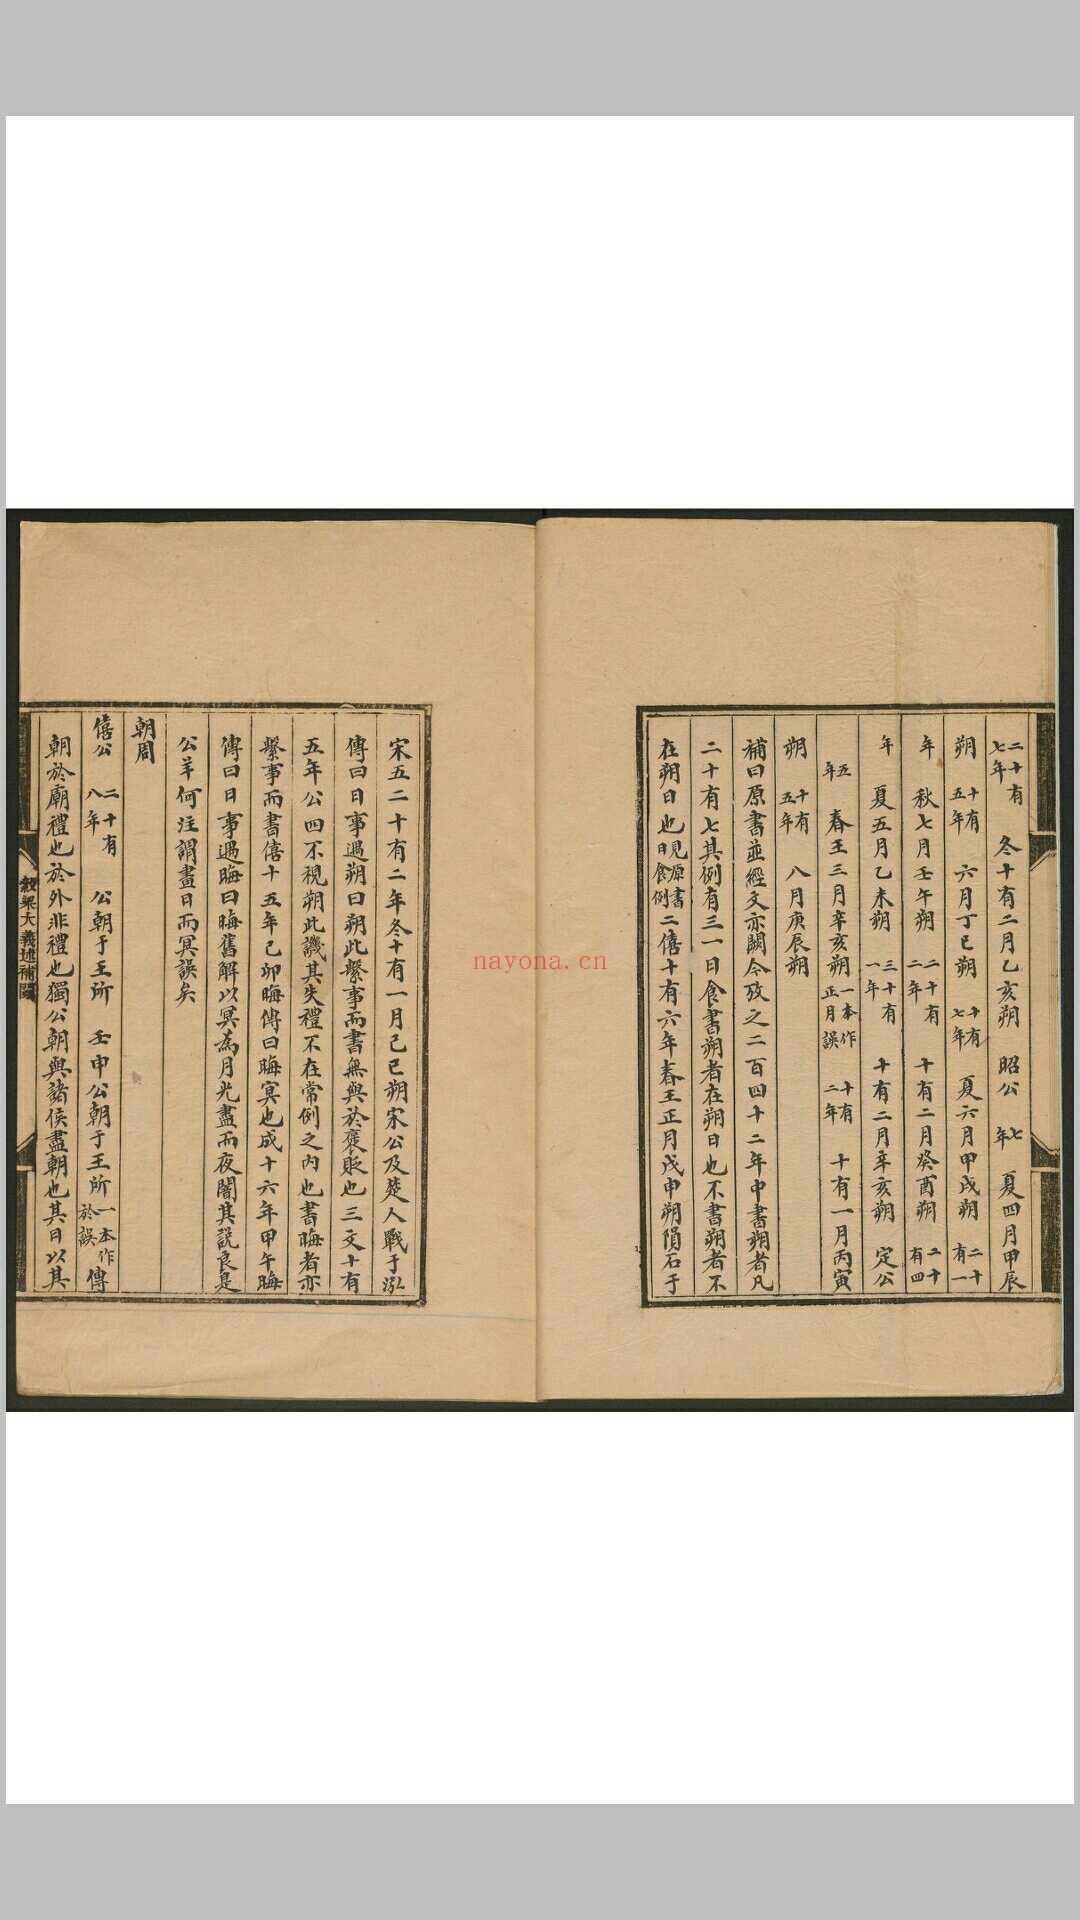 二十有七年 冬十有二月乙亥朔 昭公 七年 夏四月甲辰
朔 十有五年 六月丁巳朔 十有七年 夏六月甲戌朔 二十有一
年 秋七月壬午朔 二十有二年 十有二月癸酉朔 二十有四
年 夏五月乙未朔 三十有一年 十有二月辛亥朔 定公
五年 春王三月辛亥朔 一本作正月誤 十有二年 十有一月丙寅
朔 十有五年 八月庚辰朔
補曰原書並經文亦闕今攷之二百四十二年中書朔者凡
二十有七其例有三一日食書朔者在朔日也不書朔者不
在朔日也見原書日食例二僖十有六年春王正月戊申朔隕石于
宋五二十有二年冬十有一月己巳朔宋公及楚人戰于泓
傳曰日事遇朔曰朔此繫事而書無與於褒貶也三文十有
五年公四不視朔此譏其失禮不在常例之內也書晦者亦
繫事而書僖十五年己卯晦傳曰晦冥也成十六年甲午晦
傳曰日事遇晦曰晦舊解以冥為月光盡而夜闇其説良是
公羊何注謂晝日而冥誤矣
朝周
僖公 二十有八年 公朝于王所 壬申公朝于王所 一本作於誤 傳
朝於廟禮也於外非禮也獨公朝與諸侯盡朝也其日以其
穀梁大義述補闕
nayona.cn